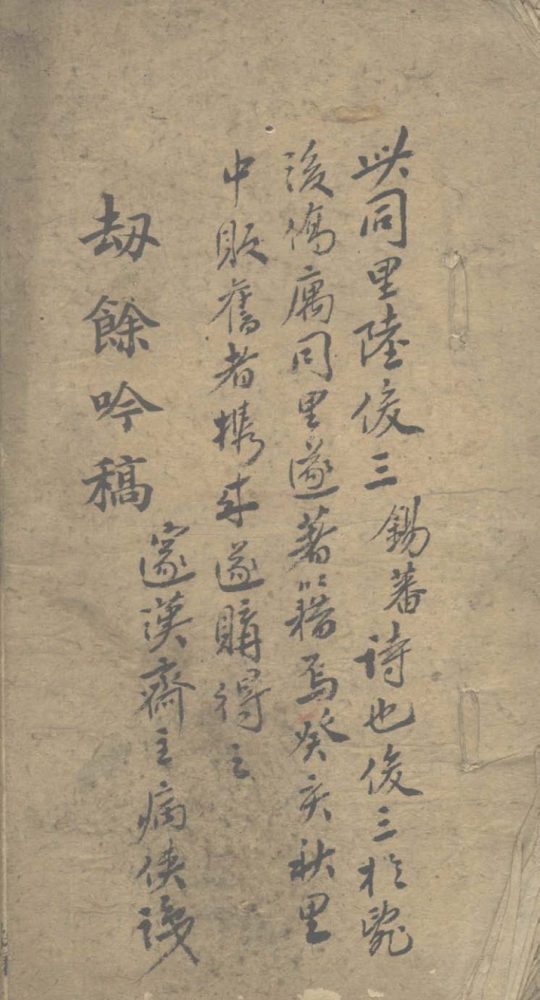 此同里陸俊三錫蕃詩也俊三於亂
後僑寓同里遂著籍焉癸亥秋里
中販舊者攜來遂購得之
邃漢齋主病俠識
刼餘吟稿